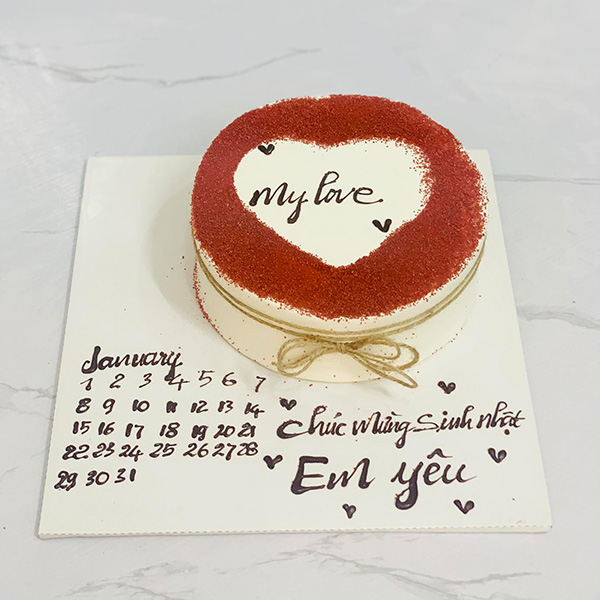 My love
January
1 2 3 4 5 6 7
8 9 10 11 12 13 14
15 16 17 18 19 20 21
22 23 24 25 26 27 28
29 30 31
chúc mừng sinh nhật
Em yêu